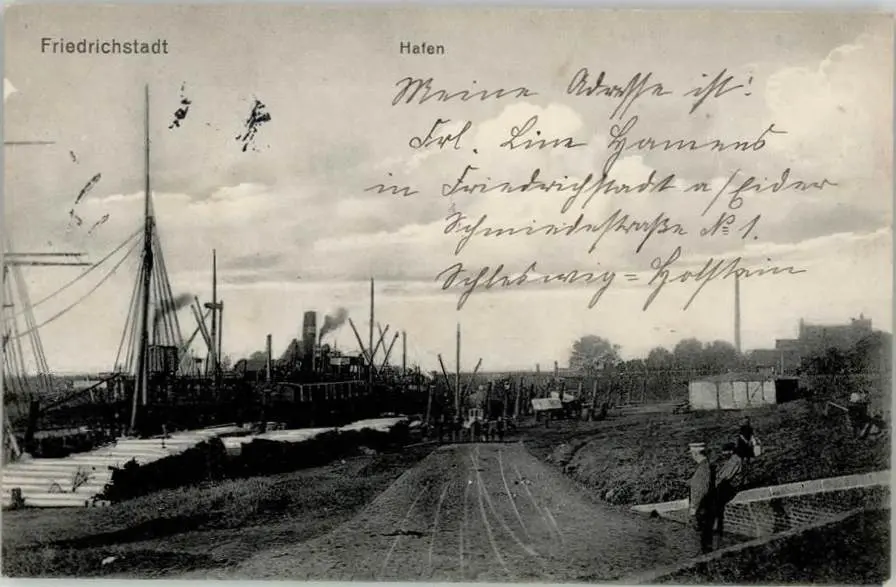 Friedrichstadt
Hafen
Meine Adresse ist:
Frl. Line Hamens
in Friedrichstadt a/Eider
Schmiedestraße No 1.
Schleswig=Holstein